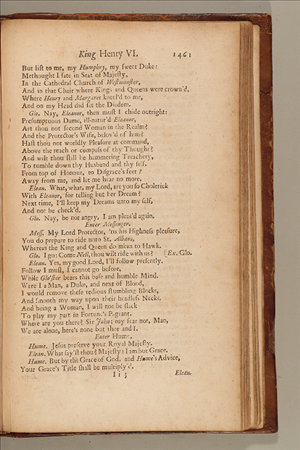 King Henry VI. 1461
But list to me, my Humphry, my sweet Duke:
Methought I sate in Seat of Majesty,
In the Cathedral Church of Westminster,
And in that Chair where Kings and Queens were crown'd,
Where Henry and Margaret kneel'd to me,
And on my Head did set the Diadem.
Glo. Nay, Eleanor, then must I chide outright:
Presumptuous Dame, ill-natur'd Eleanor,
Art thou not second Woman in the Realm?
And the Protector's Wife, belov'd of him?
Hast thou not worldly Pleasure at command,
Above the reach or compass of thy Thought?
And wilt thou still be hammering Treachery,
To tumble down thy Husband and thy self,
From top of Honour, to Disgrace's feet?
Away from me, and let me hear no more.
Elean. What, what, my Lord, are you so Cholerick
With Eleanor, for telling but her Dream?
Next time, I'll keep my Dreams unto my self,
And not be check'd.
Glo. Nay, be not angry, I am pleas'd again.
Enter Messenger.
Mess. My Lord Protector, 'tis his Highness pleasure,
You do prepare to ride unto St. Albans,
Whereas the King and Queen do mean to Hawk.
Glo. I go: Come Nell, thou wilt ride with us? [Ex. Glo.
Elean. Yes, my good Lord, I'll follow presently.
Follow I must, I cannot go before,
While Glo'ster bears this base and humble Mind.
Were I a Man, a Duke, and next of Blood,
I would remove these tedious stumbling Blocks,
And smooth my way upon their headless Necks.
And being a Woman, I will not be slack
To play my part in Fortune's Pageant.
Where are you there? Sir John; nay fear not, Man,
We are alone, here's none but thee and I.
Enter Hume.
Hume. Jesus preserve your Royal Majesty.
Elean. What say'st thou? Majesty: I am but Grace.
Hume. But by the Grace of God, and Hume's Advice,
Your Grace's Title shall be multiply'd.
I i 3 Elean.